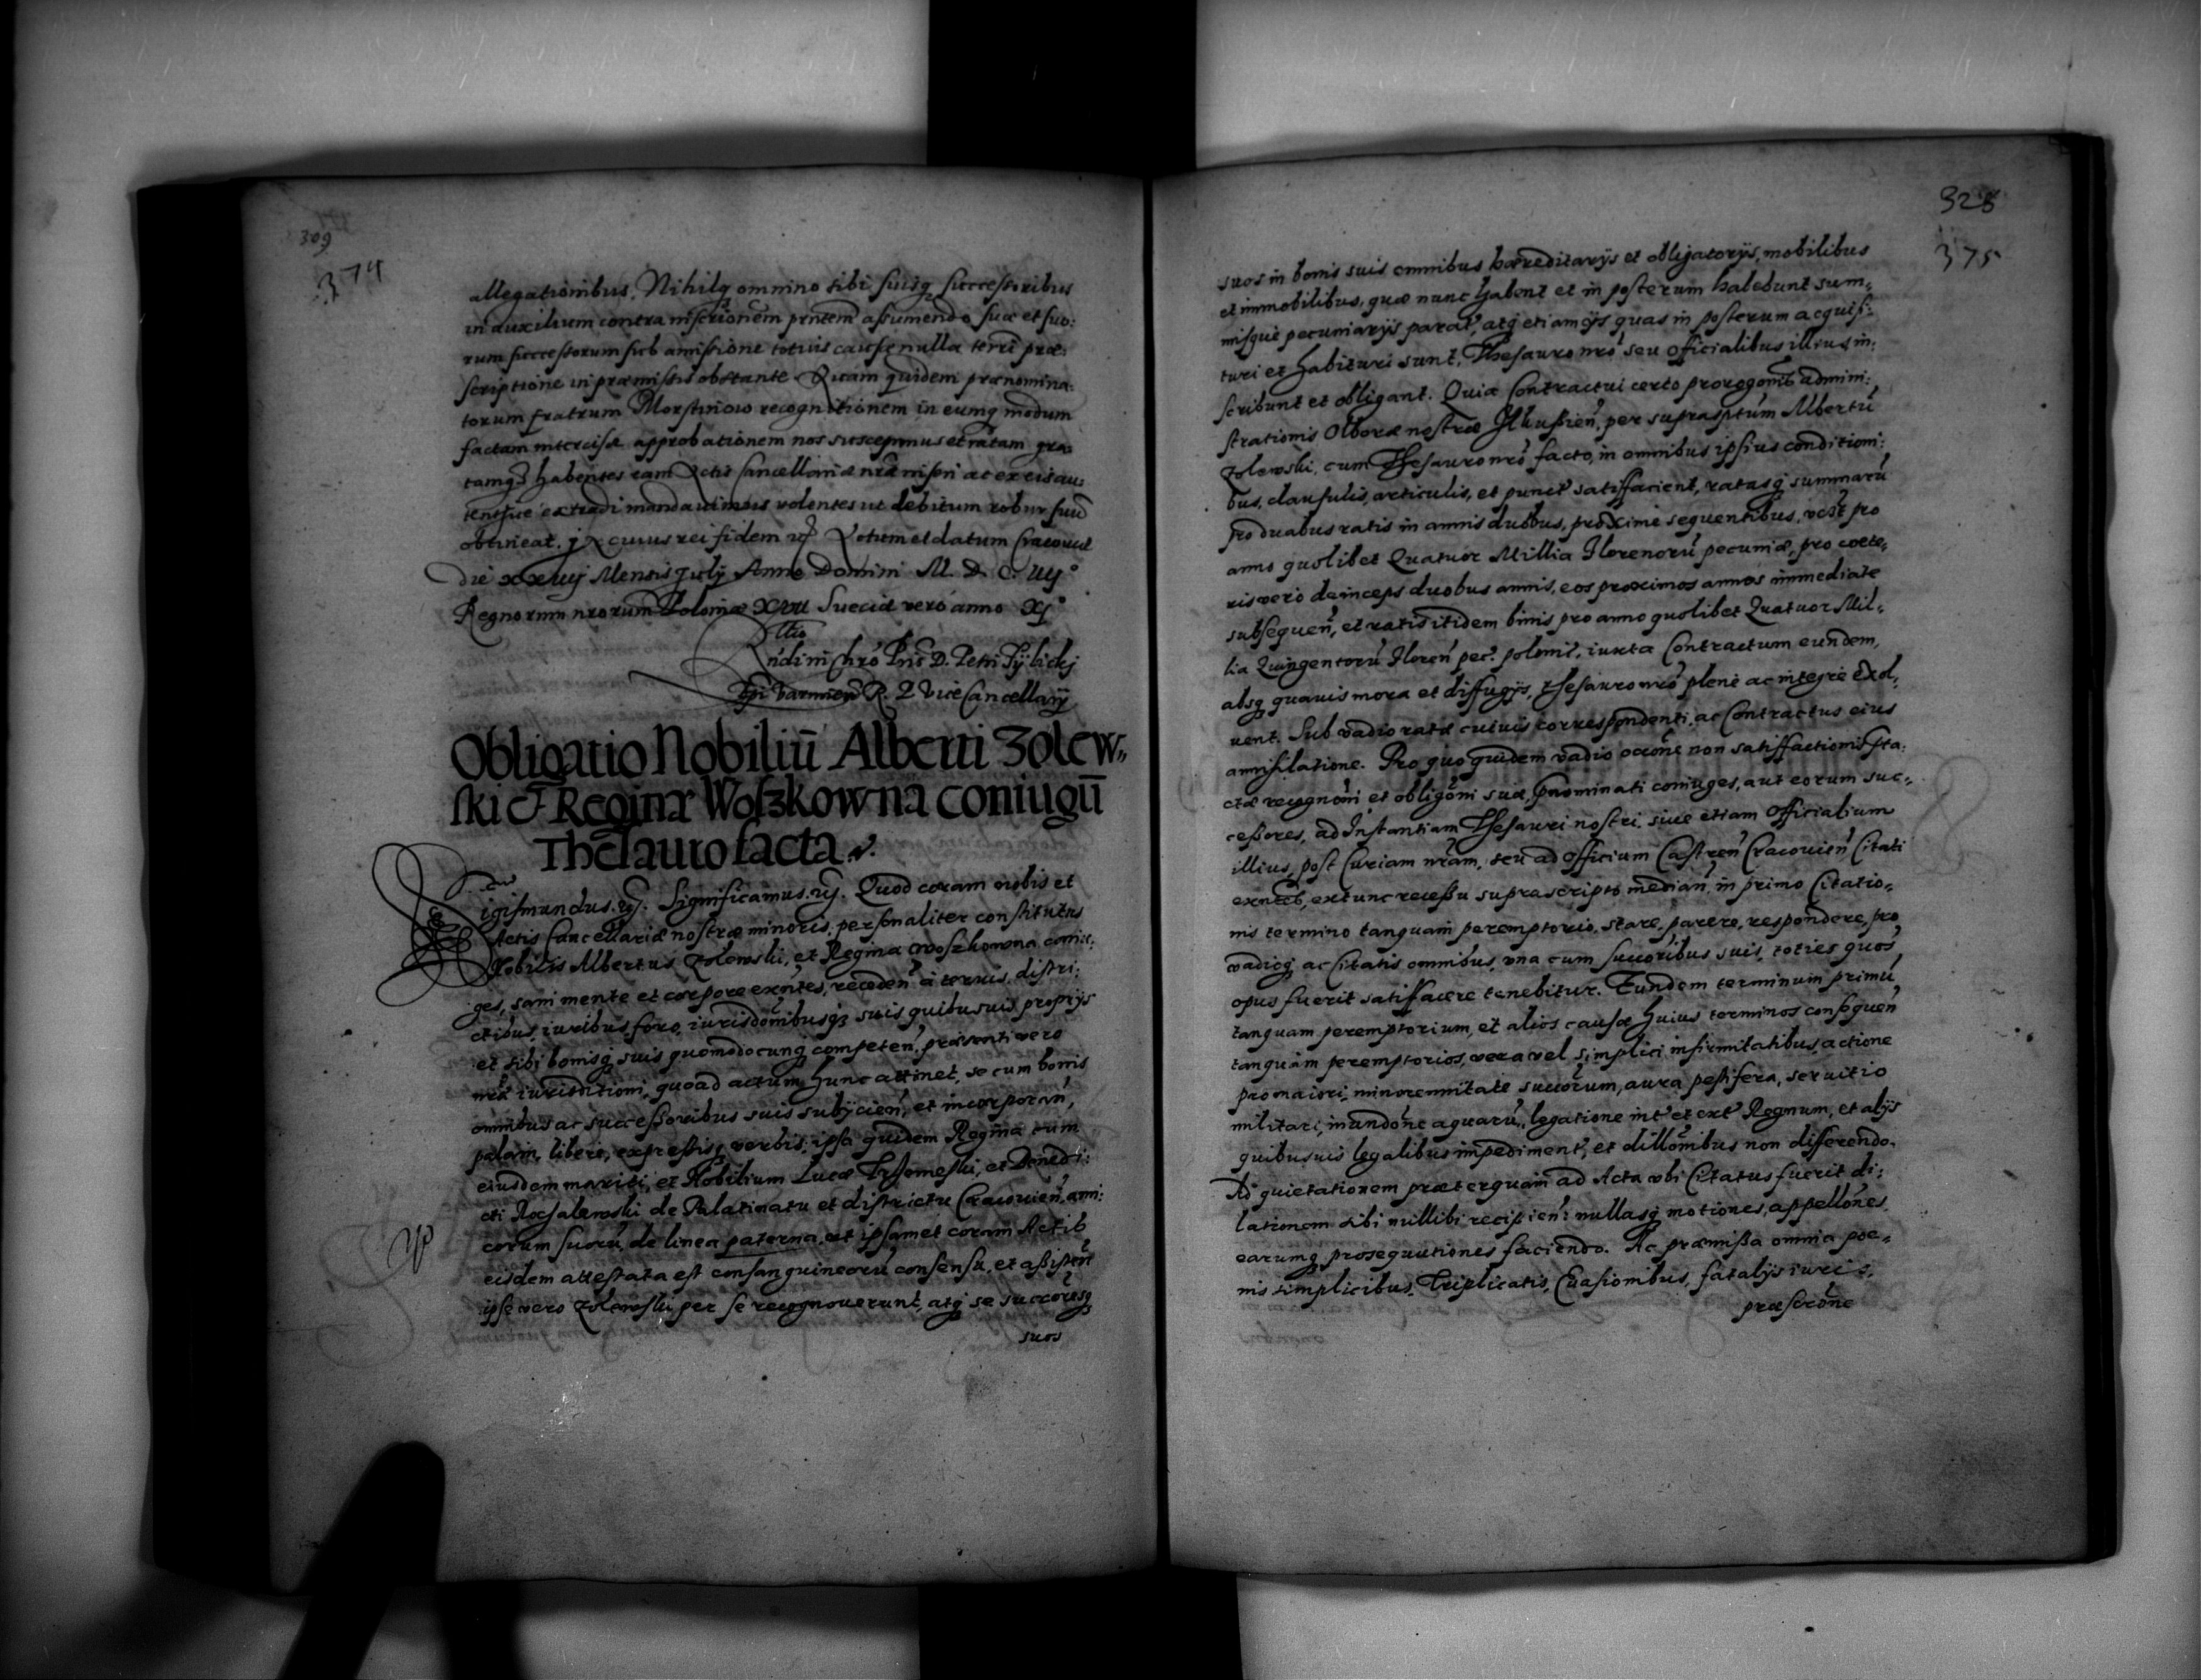 309
374
allegationibus, Nihilq̃ omnino sibi suisq̃ successoribus
in auxilium contra inscriõnem pñtem assumendo suæ et suo:
rum successorum sub amissione totius causæ nulla terr̃i præ:
scriptione in præmissis obstante. Quam quidem prænomina:
torum fratrum Morstinow recognitionem in eumq̃ modum
factam approbationem nos suscepimus et ratam gra:
tamq̃ habentes eam Actis Cancellariæ nr̃æ ac ex eis au:
extradi mandavimus volentes ut debitum robur suũ
obtineat. In cuius rei fidem Actum et datum Cracoviæ
die xxiiij Mensis Julij Anno Domini M. D. C. iiij°
Regnorum nrorum Poloniæ XVII Sueciæ vero anno XJ°
Rñdi in Chrõ Pr̃is D. Petri Tÿlickj
Ep̃i Varmien̄ R. P. ViceCancellarij
Obligatio Nobiliũ Alberti Zolew„
ski & Reginæ Woszkowna coniugũ
Thesauro facta
Sigismundus. Significamus. Quod coram nobis et
Actis Cancellariæ nostræ minoris, personaliter constitutus
Nobilis Albertus Zolewski, et Regina Woszkowna coniu:
ges, sani mente et corpore exñtes, receden̄ à terris, distri:
ctibus, iuribus foro, iurisdõnibusq̃ suis quibusuis proprijs
et sibi bonisq̃ suis quomodocunq̃ competen̄, præsenti vero
nr̃æ iurisditioni, quoad actum hunc attinet, se cum bonis
omnibus ac successoribus suis subijcien̄, et incorporan̄,
palam, libere, expressisq̃ verbis, ipsa quidem Regina cum
eiusdem mariti, et Nobilium Lucæ et Benedi:
cti Rochalewski de Palatinatu et districtu Cracovien̄, ami:
corum suorũ, de linea paterna, ut ipsamet coram Actis
eisdem attestata est consanguineorũ consensu, et assisten̄
ipse vero Zolewski per se recognoverunt, atq̃ se succõresq̃
suos
328
375
suos in bonis suis omnibus hæreditarijs et obligatorijs, mobilibus
et immobilibus, quæ nunc habent et in posterum habebunt sum„
misque pecuniarijs parat̃, atq̃ etiam ijs quas in posterum acquisi:
turi et habituri sunt, Thesauro nrõ seu officialibus illius in:
scribunt et obligant. Quia Contractui certo prorogõnis admini:
strationis Olboræ nostræ Ilkussien̄, per suprasptum Albertũ
Zolewski, cum Thesauro nrõ facto, in omnibus ipsius conditioni:
bus, clausulis, articulis, et punct̃ satisfacient, ratasq̃ summarũ
pro duabus ratis in annis duobus, proxime sequentibus, vcz̃t pro
anno quolibet Quatuor Millia Florenorũ pecuniæ, pro cæte„
ris vero deinceps duobus annis, eos proximos annos immediate
subsequen̄, et ratis itidem binis pro anno quolibet Quatuor Mil„
lia Quingentorũ Floren̄ pec̃. polonic̃, iuxta Contractum eundem,
absq̃ quavis mora et diffugijs, thesauro nrõ plene ac integre exol„
vent. Sub vadio ratæ cuiuis correspondenti, ac Contractus eius
annihilatione. Pro quo quidem vadio occõne non satisfactionis
recognõni et obligõni suæ, pñominati coniuges, aut eorum suc„
cessores, ad Instantiam Thesauri nostri, sive etiam Officialium
illius, post Curiam nr̃am, seu ad Officium Castren̄ Cracovien̄ Citati
exñtes, extunc recessu suprascripto median̄, in primo Citatio„
nis termino tanquam peremptorio, stare, parere, respondere, pro
vadioq̃ ac Citatis omnibus, una cum succoribus suis, toties quos
opus fuerit satisfacere tenebitur. Eundem terminum primũ
tanquam peremptorium, et alios causæ huius terminos consequen̄
tanquam peremptorios, vera vel simplici infirmitatibus, actione
pro maiori, minorennitate succõrum, aura pestifera, servitio
militari, inundõne aquarũ, legatione int̃ et ext̃ Regnum, et alijs
quibusuis legalibus impediment̃, et dillõnibus non differendo.
Ad quietationem præterquam ad Acta ubi Citatus fuerit di:
lationem sibi nullibi recipien̄: nullasq̃ motiones, appellõnes
earumq̃ prosequutiones faciendo. Ac præmissa omnia poe„
nis simplicibus, Triplicatis, Evasionibus, fatalijs iuris,
præscrõne